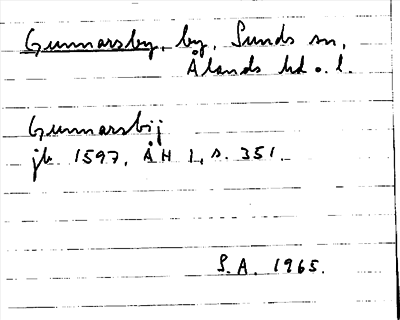 Gunnarsby, by, Sunds sn,
Ålands hd o. l.
Gunnarsbij
jb 1597, ÅH 1, s. 351.
S.A. 1965.